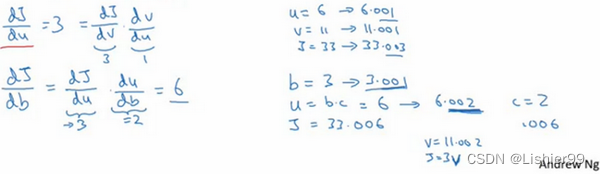 dJ/du = 3 = dJ/dv · dv/du
3 1
dJ/db = dJ/du · du/db = 6
→3 =2
u = 6 → 6.001
v = 11 → 11.001
J = 33 → 33.003
b = 3 → 3.001
u = b·c = 6 → 6.002 c = 2
J = 33.006 .006
v = 11.002
J = 3v
Andrew Ng
CSDN @Lishier99